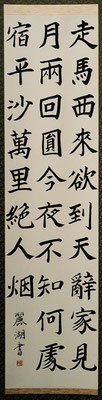 走馬西來欲到天辭家見
月兩回圓今夜不知何處
宿平沙萬里絕人烟
麗湖書